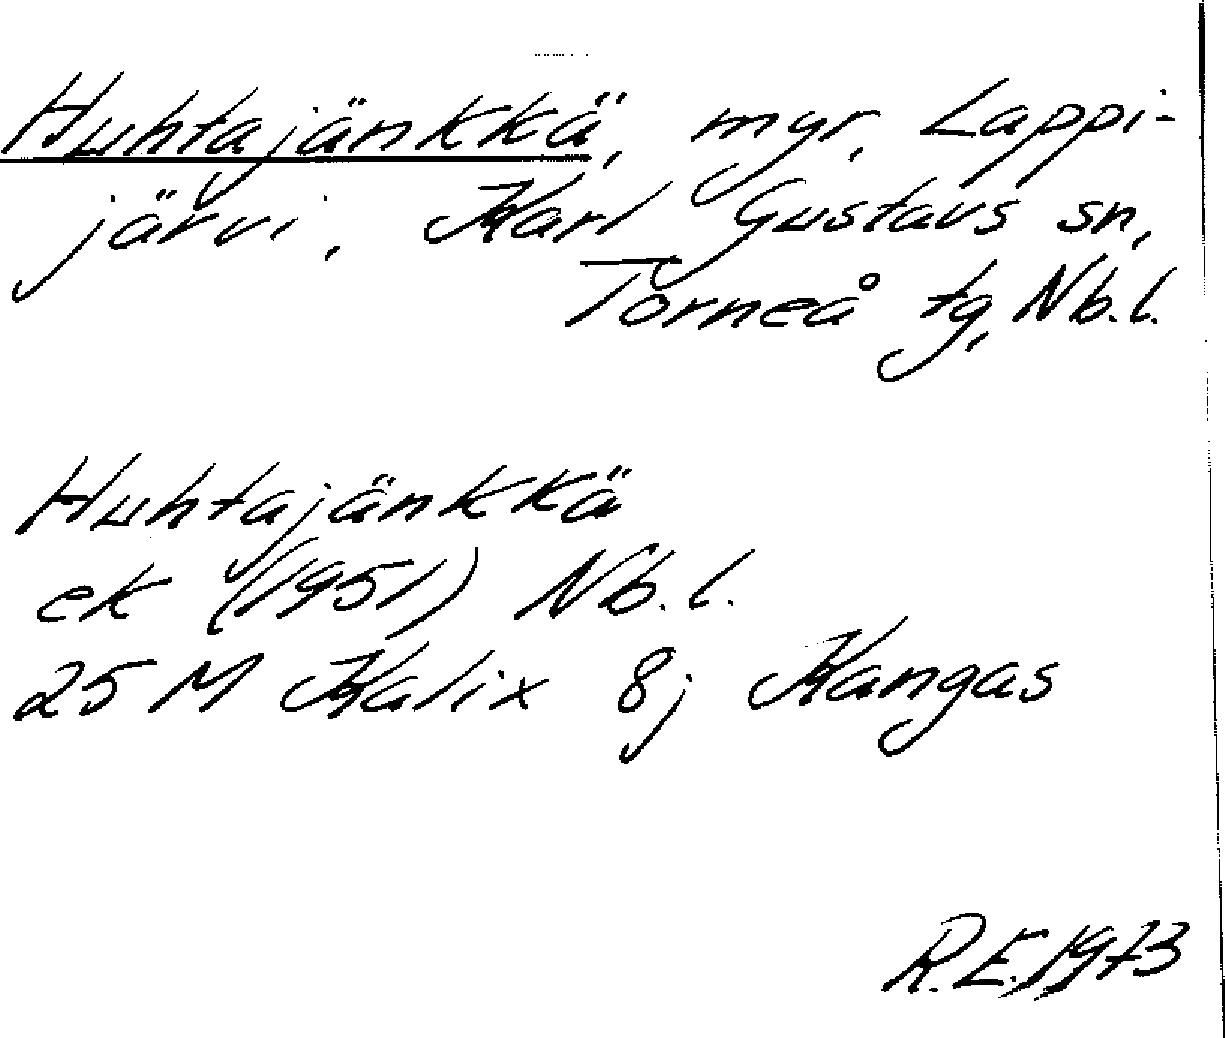 Huhtajänkkä, myr, Lappi-
järvi, Karl Gustavs sn,
Torneå tg, Nb.l.
Huhtajänkkä
ek (1951) Nb.l.
25 M Kalix 8j Kangas
R.E. 1973